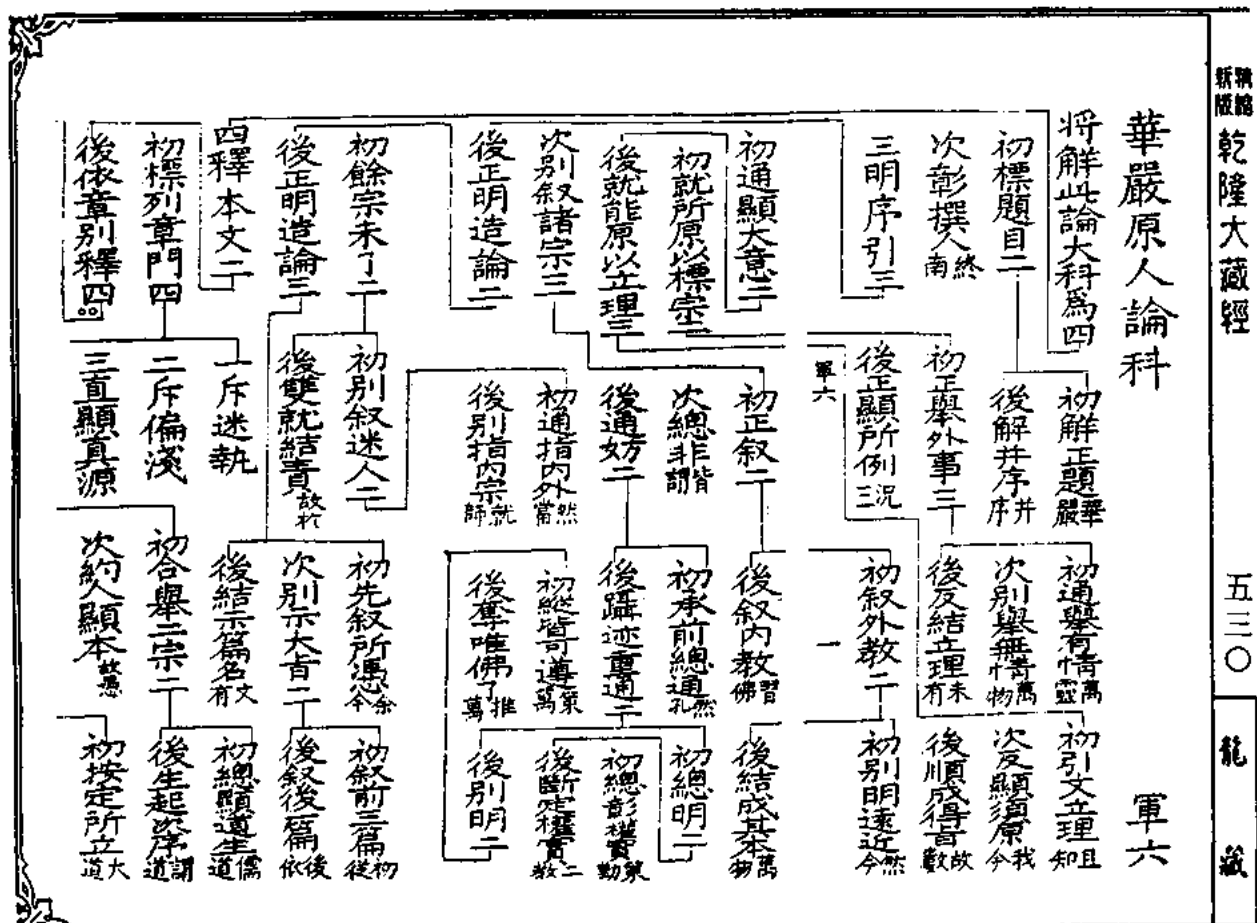 精縮
新版
乾隆大藏經
五三〇
龍藏
華嚴原人論科
軍六
將解此論大科爲四
初標題目二
次彰撰人 終南
三明序引三
初通顯大意二
初就所原以標宗二
後就能原以立理三
次別叙諸宗三
後正明造論二
初餘宗未了二
後正明造論三
四釋本文二
初標列章門四
後依章別釋四
初解正題 華嚴
後解并序 并序
初正舉外事三
後正顯所例 況三
軍六
初正叙二
次總非 皆謂
後通妨二
初通指內外 然當
後別指內宗 就師
初別叙迷人二
後雙就結責 故於
一斥迷執
二斥偏淺
三直顯真源
初通舉有情 萬靈
次別舉無情 萬物
後反結立理 未有
初叙外教二
一
後叙內教 習佛
初承前總通 然孔
後躡迹重通二
初縱皆可遵 策萬
後奪唯佛了 推萬
初先叙所憑 余今
次別示大旨二
後結示篇名 文有
初合舉二宗二
次約人顯本 故愚
初引文立理 且知
次反顯須原 我今
後順成得旨 故數
初別明遠近 然今
後結成基本 萬物
初總明二
初總彰權實 策勤
後斷定權實 二教
後別明二
初叙前三篇 初從
後叙後一篇 後依
初總顯道生 儒道
後生起次序 謂道
初按定所立 大道